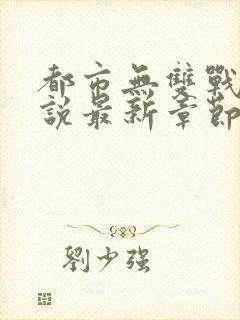 都市無雙戰
說最新章節
劉少強